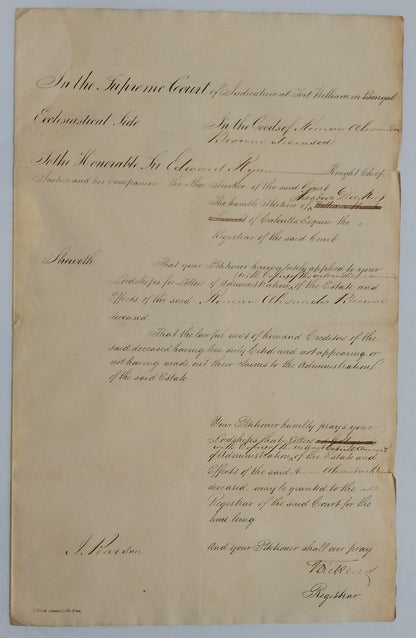 In the Supreme Court of Judicature at Fort William in Bengal
Ecclesiastical Side
In the Goods of Norman Alexander
deceased
To the Honorable Sir Edward Ryan Knight Chief
Justice and his Companion the other Justice of the said Court
The humble Petition of
of Calcutta Esquire the
Registrar of the said Court
Sheweth
That your Petitioner having lately applied to your
with Copies of the
Lordships for Letters of Administration of the Estate and
Effects of the said Norman Alexander
deceased
That the lawful next of kin and Creditors of the
said deceased having been duly Cited and not appearing or
not having made out their Claims to the Administration
of the said Estate
Your Petitioner humbly prays your
Lordships that Letters
with Copies of the annexed
of Administration of the Estate and
Effects of the said Alexander
deceased may be granted to the
Registrar of the said Court for the
time being
And your Petitioner shall ever pray
J. Pearson
Registrar